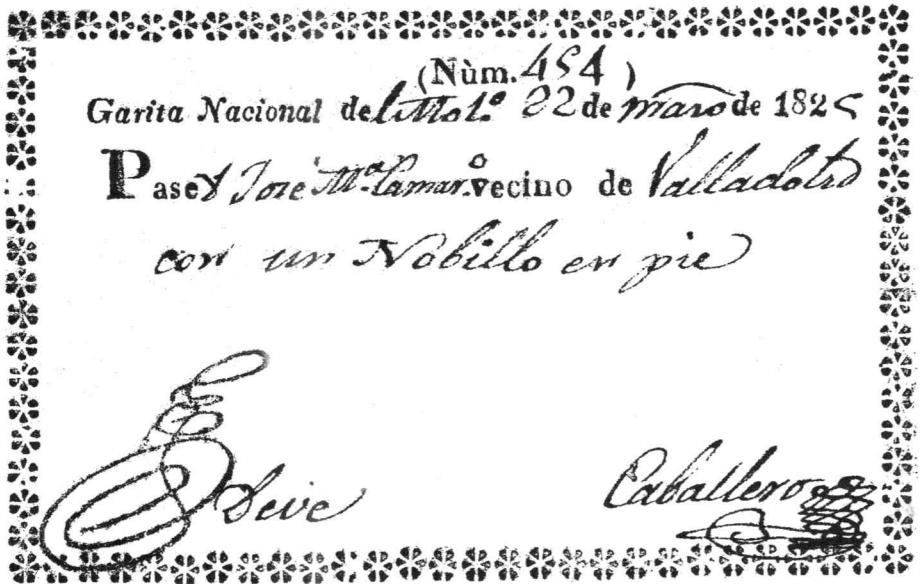 (Nùm. 454 )
Garita Nacional de 22 de marzo de 182
Pase José Mª vecino de Valladolid
con un Nobillo en pie
Deve
Caballero